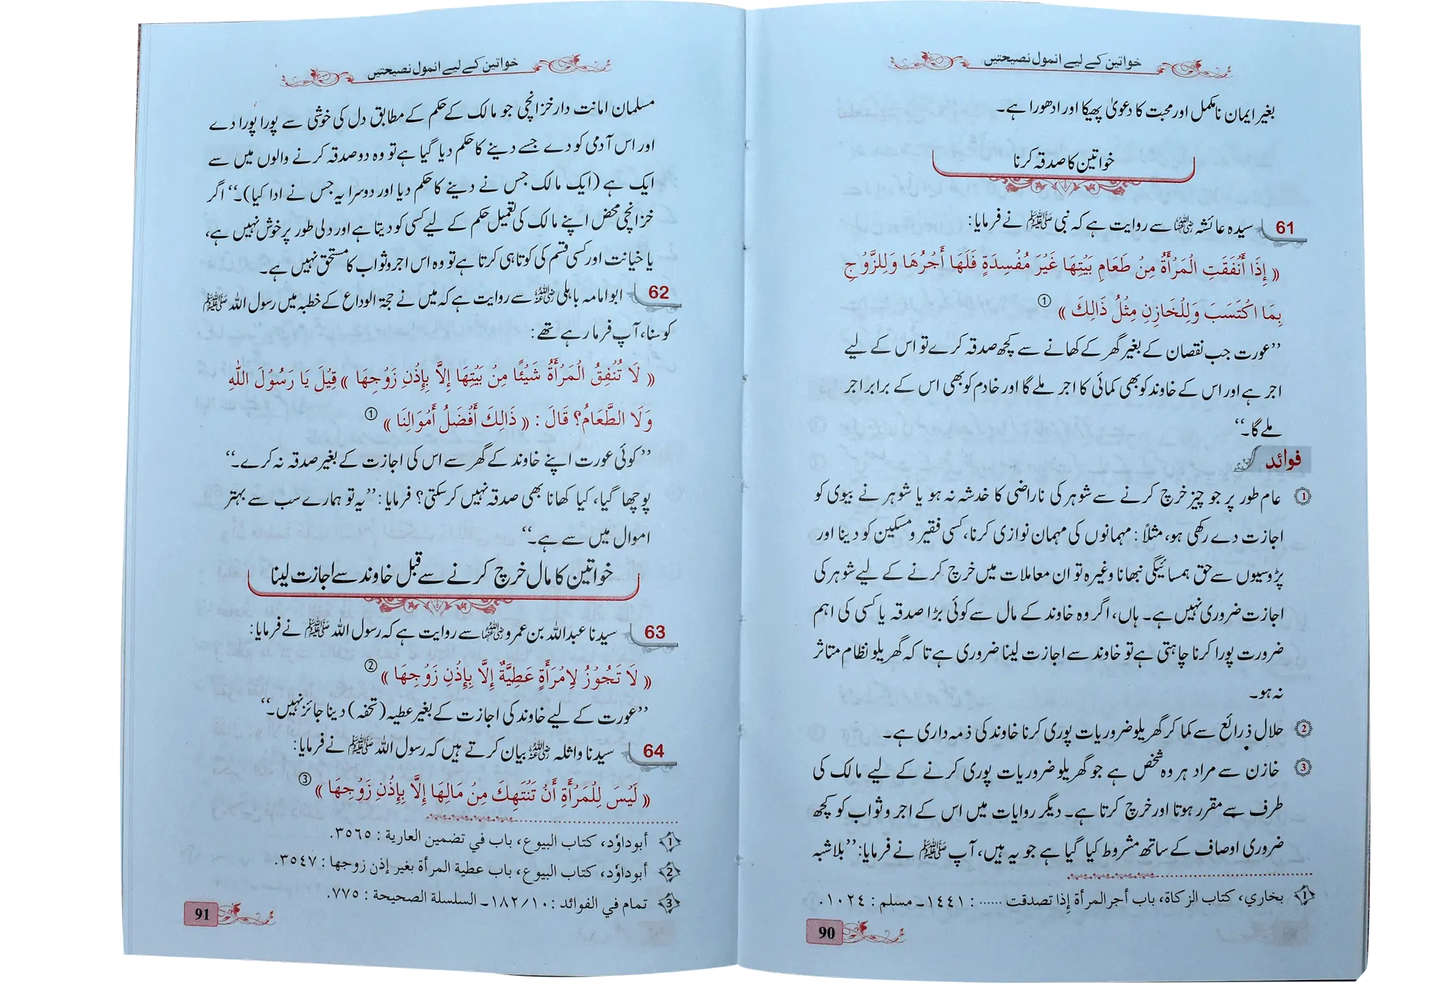 خواتین کے لیے انمول نصیحتیں
بغیر ایمان نامکمل اور محبت کا دعویٰ پھیکا اور ادھورا ہے۔
خواتین کا صدقہ کرنا
61 سیدہ عائشہ رضی اللہ عنہا سے روایت ہے کہ نبی ﷺ نے فرمایا:
« إِذَا أَنْفَقَتِ الْمَرْأَةُ مِنْ طَعَامِ بَيْتِهَا غَيْرَ مُفْسِدَةٍ فَلَهَا أَجْرُهَا وَلِلزَّوْجِ
بِمَا اكْتَسَبَ وَلِلْخَازِنِ مِثْلُ ذَالِكَ » ①
’’عورت جب نقصان کے بغیر گھر کے کھانے سے کچھ صدقہ کرے تو اس کے لیے
اجر ہے اور اس کے خاوند کو بھی کمائی کا اجر ملے گا اور خادم کو بھی اس کے برابر اجر
ملے گا۔‘‘
فوائد
① عام طور پر جو چیز خرچ کرنے سے شوہر کی ناراضی کا خدشہ نہ ہو یا شوہر نے بیوی کو
اجازت دے رکھی ہو، مثلاً: مہمانوں کی مہمان نوازی کرنا، کسی فقیر و مسکین کو دینا اور
پڑوسیوں سے حق ہمسائیگی نبھانا وغیرہ تو ان معاملات میں خرچ کرنے کے لیے شوہر کی
اجازت ضروری نہیں ہے۔ ہاں، اگر وہ خاوند کے مال سے کوئی بڑا صدقہ یا کسی کی اہم
ضرورت پورا کرنا چاہتی ہے تو خاوند سے اجازت لینا ضروری ہے تا کہ گھریلو نظام متاثر
نہ ہو۔
② حلال ذرائع سے کما کر گھریلو ضروریات پوری کرنا خاوند کی ذمہ داری ہے۔
③ خازن سے مراد ہر وہ شخص ہے جو گھریلو ضروریات پوری کرنے کے لیے مالک کی
طرف سے مقرر ہوتا اور خرچ کرتا ہے۔ دیگر روایات میں اس کے اجر و ثواب کو کچھ
ضروری اوصاف کے ساتھ مشروط کیا گیا ہے جو یہ ہیں، آپ ﷺ نے فرمایا: ’’بلاشبہ
① بخاري، كتاب الزكاة، باب أجر المرأة إذا تصدقت ...... : ١٤٤١۔ مسلم : ١٠٢٤.
90
خواتین کے لیے انمول نصیحتیں
مسلمان امانت دار خزانچی جو مالک کے حکم کے مطابق دل کی خوشی سے پورا پورا دے
اور اس آدمی کو دے جسے دینے کا حکم دیا گیا ہے تو وہ دو صدقہ کرنے والوں میں سے
ایک ہے (ایک مالک جس نے دینے کا حکم دیا اور دوسرا یہ جس نے ادا کیا)۔‘‘ اگر
خزانچی محض اپنے مالک کی تعمیل حکم کے لیے کسی کو دیتا ہے اور دلی طور پر خوش نہیں ہے،
یا خیانت اور کسی قسم کی کوتاہی کرتا ہے تو وہ اس اجر و ثواب کا مستحق نہیں ہے۔
62 ابو امامہ باہلی رضی اللہ عنہ سے روایت ہے کہ میں نے حجۃ الوداع کے خطبہ میں رسول اللہ ﷺ
کو سنا، آپ فرما رہے تھے:
« لَا تُنْفِقُ الْمَرْأَةُ شَيْئًا مِنْ بَيْتِهَا إِلَّا بِإِذْنِ زَوْجِهَا » قِيْلَ يَا رَسُوْلَ اللَّهِ
وَلَا الطَّعَامُ؟ قَالَ : « ذَالِكَ أَفْضَلُ أَمْوَالِنَا » ①
’’کوئی عورت اپنے خاوند کے گھر سے اس کی اجازت کے بغیر صدقہ نہ کرے۔‘‘
پوچھا گیا، کیا کھانا بھی صدقہ نہیں کر سکتی؟ فرمایا: ’’یہ تو ہمارے سب سے بہتر
اموال میں سے ہے۔‘‘
خواتین کا مال خرچ کرنے سے قبل خاوند سے اجازت لینا
63 سیدنا عبداللہ بن عمرو رضی اللہ عنہما سے روایت ہے کہ رسول اللہ ﷺ نے فرمایا:
« لَا تَجُوْزُ لِامْرَأَةٍ عَطِيَّةٌ إِلَّا بِإِذْنِ زَوْجِهَا » ②
’’عورت کے لیے خاوند کی اجازت کے بغیر عطیہ (تحفہ) دینا جائز نہیں۔‘‘
64 سیدنا واثلہ رضی اللہ عنہ بیان کرتے ہیں کہ رسول اللہ ﷺ نے فرمایا:
« لَيْسَ لِلْمَرْأَةِ أَنْ تَنْتَهِكَ مِنْ مَالِهَا إِلَّا بِإِذْنِ زَوْجِهَا » ③
① أبوداوٗد، كتاب البيوع، باب في تضمين العارية : ٣٥٦٥.
② أبوداوٗد، كتاب البيوع، باب عطية المرأة بغير إذن زوجها : ٣٥٤٧.
③ تمام في الفوائد : ١٨٢/١٠۔ السلسلة الصحيحة : ٧٧٥.
91